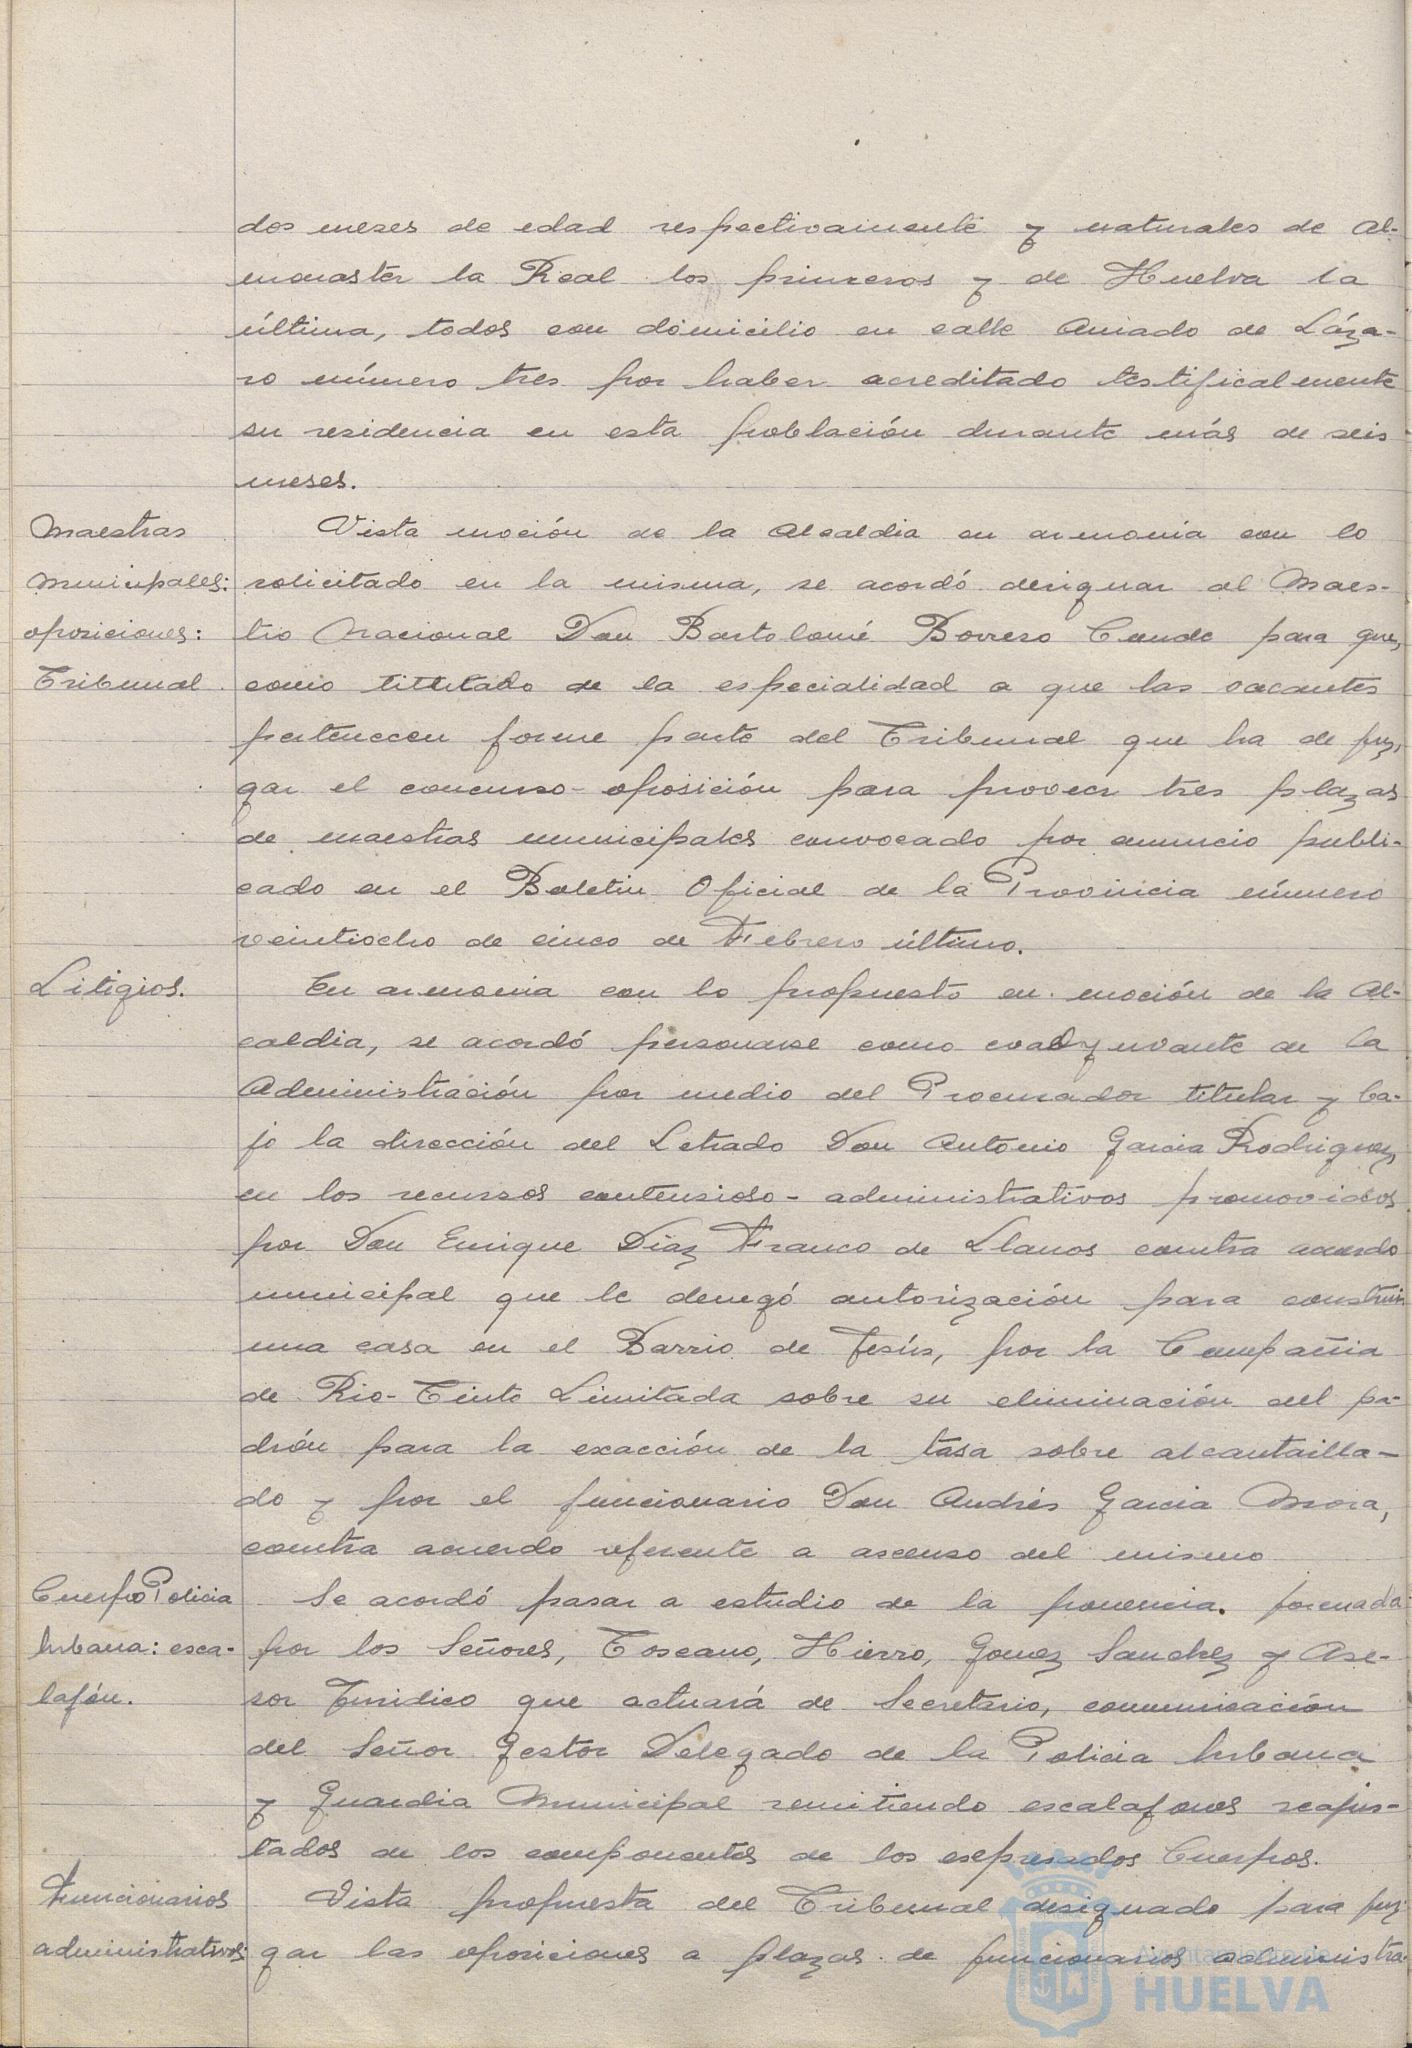 dos meses de edad respectivamente y naturales de Al-
monaster la Real los primeros y de Huelva la
última, todos con domicilio en calle Amado de Láza-
ro número tres por haber acreditado testificalmente
su residencia en esta población durante más de seis
meses.
Maestras
municipales:
oposiciones:
Tribunal
Vista moción de la Alcaldia en armonia con lo
solicitado en la misma, se acordó designar al Maes-
tro Nacional Don Bartolomé Borrero Conde para que,
como titulado de la especialidad a que las vacantes
pertenecen forme parte del Tribunal que ha de juz-
gar el concurso-oposición para proveer tres plazas
de maestras municipales convocado por anuncio publi-
cado en el Boletin Oficial de la Provincia número
veintiocho de cinco de Febrero último.
Litigios.
En armonia con lo propuesto en moción de la Al-
caldia, se acordó personarse como coadyuvante de la
Administración por medio del Procurador titular y ba-
jo la dirección del Letrado Don Antonio Garcia Rodriguez
en los recursos contensioso-administrativos promovidos
por Don Enrique Diaz Franco de Llanos contra acuerdo
municipal que le denegó autorización para construir
una casa en el Barrio de Jesús, por la Compañia
de Rio-Tinto Limitada sobre su eliminación del pa-
drón para la exacción de la tasa sobre alcantarilla-
do y por el funcionario Don Andrés Garcia Mora,
contra acuerdo referente a ascenso del mismo
Cuerpo Policia
Urbana: esca-
lafón.
Se acordó pasar a estudio de la ponencia. formada
por los Señores, Toscano, Hierro, Gomez Sanchez y Ase-
sor Juridico que actuará de Secretario, comunicación
del Señor Gestor Delegado de la Policia Urbana
y Guardia Municipal remitiendo escalafones reajus-
tados de los componentes de los expresados Cuerpos.
Funcionarios
administrativos:
Vista propuesta del Tribunal designado para juz-
gar las oposiciones a plazas de funcionarios administra-
Ayuntamiento de
HUELVA